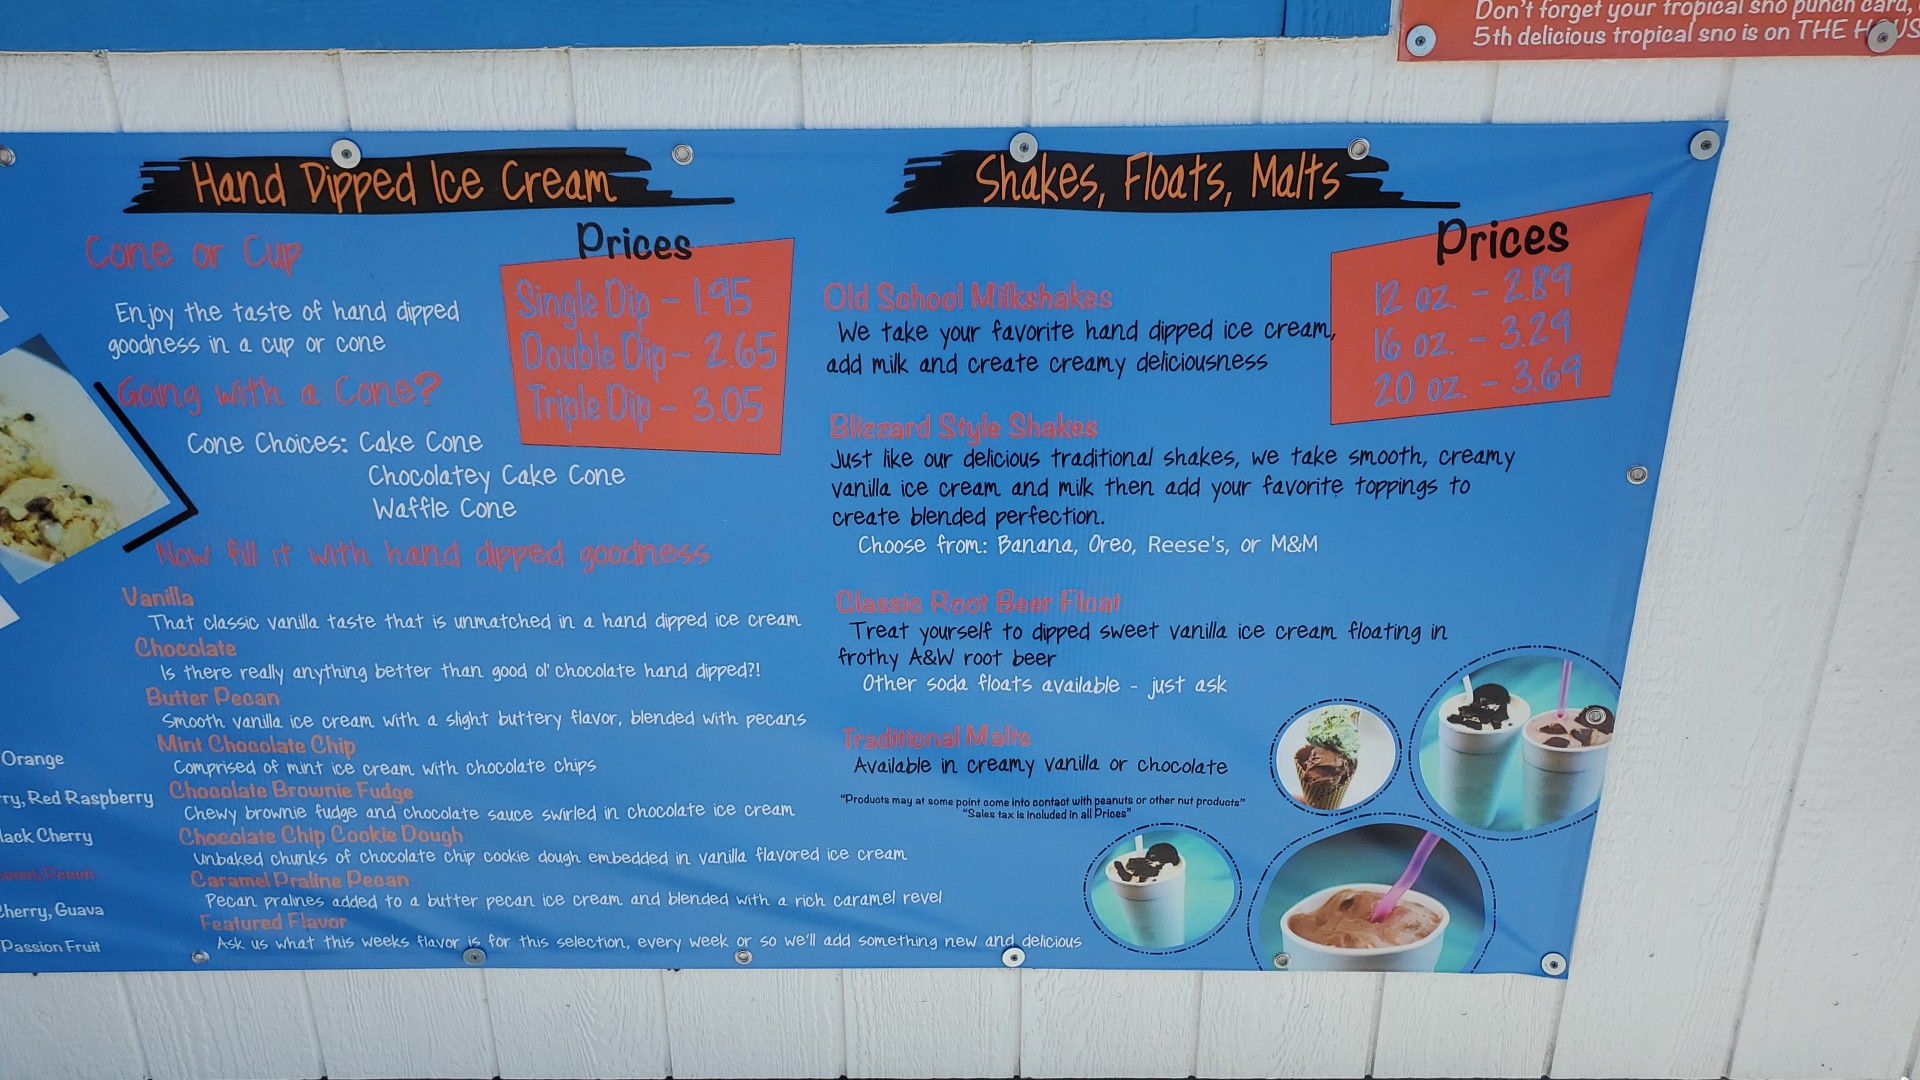 Don't forget your tropical sno punch card,
5th delicious tropical sno is on THE HOUS
Hand Dipped Ice Cream
Cone or Cup
Enjoy the taste of hand dipped
goodness in a cup or cone
Prices
Single Dip - 1.95
Double Dip - 2.65
Triple Dip - 3.05
Going with a Cone?
Cone Choices: Cake Cone
Chocolatey Cake Cone
Waffle Cone
Now fill it with hand dipped goodness
Vanilla
That classic vanilla taste that is unmatched in a hand dipped ice cream
Chocolate
Is there really anything better than good ol' chocolate hand dipped?!
Butter Pecan
Smooth vanilla ice cream with a slight buttery flavor, blended with pecans
Mint Chocolate Chip
Comprised of mint ice cream with chocolate chips
Chocolate Brownie Fudge
Chewy brownie fudge and chocolate sauce swirled in chocolate ice cream
Chocolate Chip Cookie Dough
Unbaked chunks of chocolate chip cookie dough embedded in vanilla flavored ice cream
Caramel Praline Pecan
Pecan pralines added to a butter pecan ice cream and blended with a rich caramel revel
Featured Flavor
Ask us what this weeks flavor is for this selection, every week or so we'll add something new and delicious
Orange
ry, Red Raspberry
lack Cherry
Cherry, Guava
Passion Fruit
Shakes, Floats, Malts
Prices
12 oz. - 2.89
16 oz. - 3.29
20 oz. - 3.69
Old School Milkshakes
We take your favorite hand dipped ice cream,
add milk and create creamy deliciousness
Blizzard Style Shakes
Just like our delicious traditional shakes, we take smooth, creamy
vanilla ice cream and milk then add your favorite toppings to
create blended perfection.
Choose from: Banana, Oreo, Reese's, or M&M
Classic Root Beer Float
Treat yourself to dipped sweet vanilla ice cream floating in
frothy A&W root beer
Other soda floats available - just ask
Traditional Malts
Available in creamy vanilla or chocolate
"Products may at some point come into contact with peanuts or other nut products"
"Sales tax is included in all Prices"